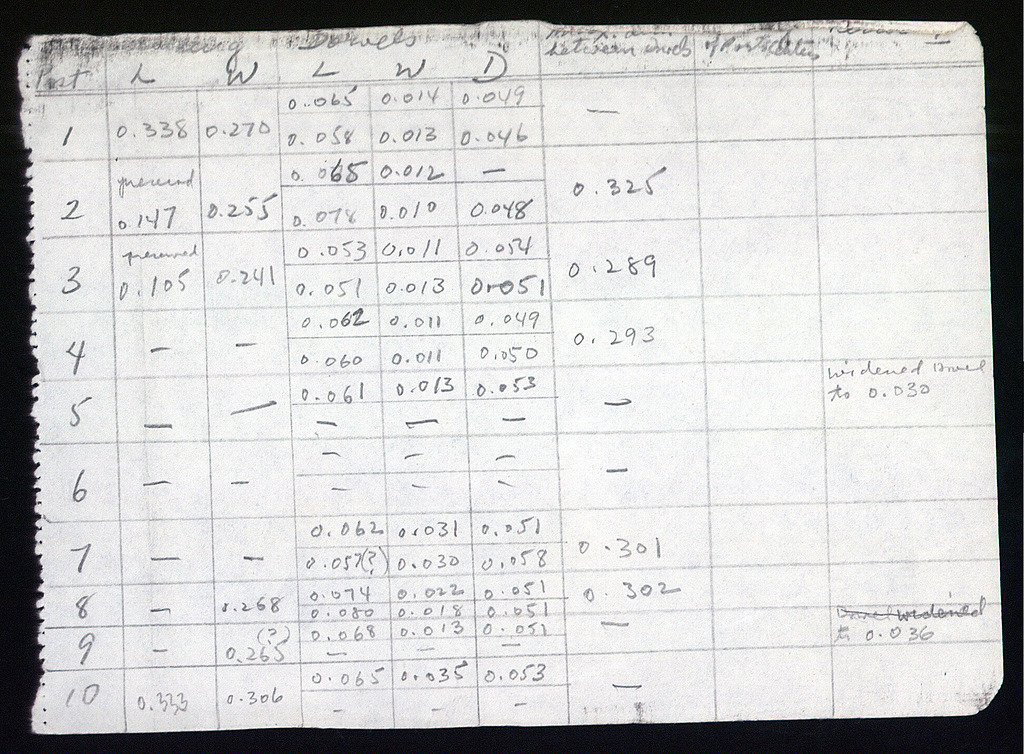 Dowels
between dowels of Posts
Post L W L W D
1 0.338 0.270 0.065 0.014 0.049 —
0.058 0.013 0.046
2 preserved 0.147 0.255 0.065 0.012 — 0.325
0.078 0.010 0.048
3 preserved 0.105 0.241 0.053 0.011 0.054 0.289
0.051 0.013 0.051
4 — — 0.062 0.011 0.049 0.293
0.060 0.011 0.050
5 — — 0.061 0.013 0.053 — widened Dowel
— — — to 0.030
6 — — — — — —
— — —
7 — — 0.062 0.031 0.051 0.301
0.057(?) 0.030 0.058
8 — 0.268 0.074 0.022 0.051 0.302
0.080 0.018 0.051
9 — (?) 0.265 0.068 0.013 0.051 — Dowel widened
— — — to 0.036
10 0.333 0.306 0.065 0.035 0.053 —
— — —